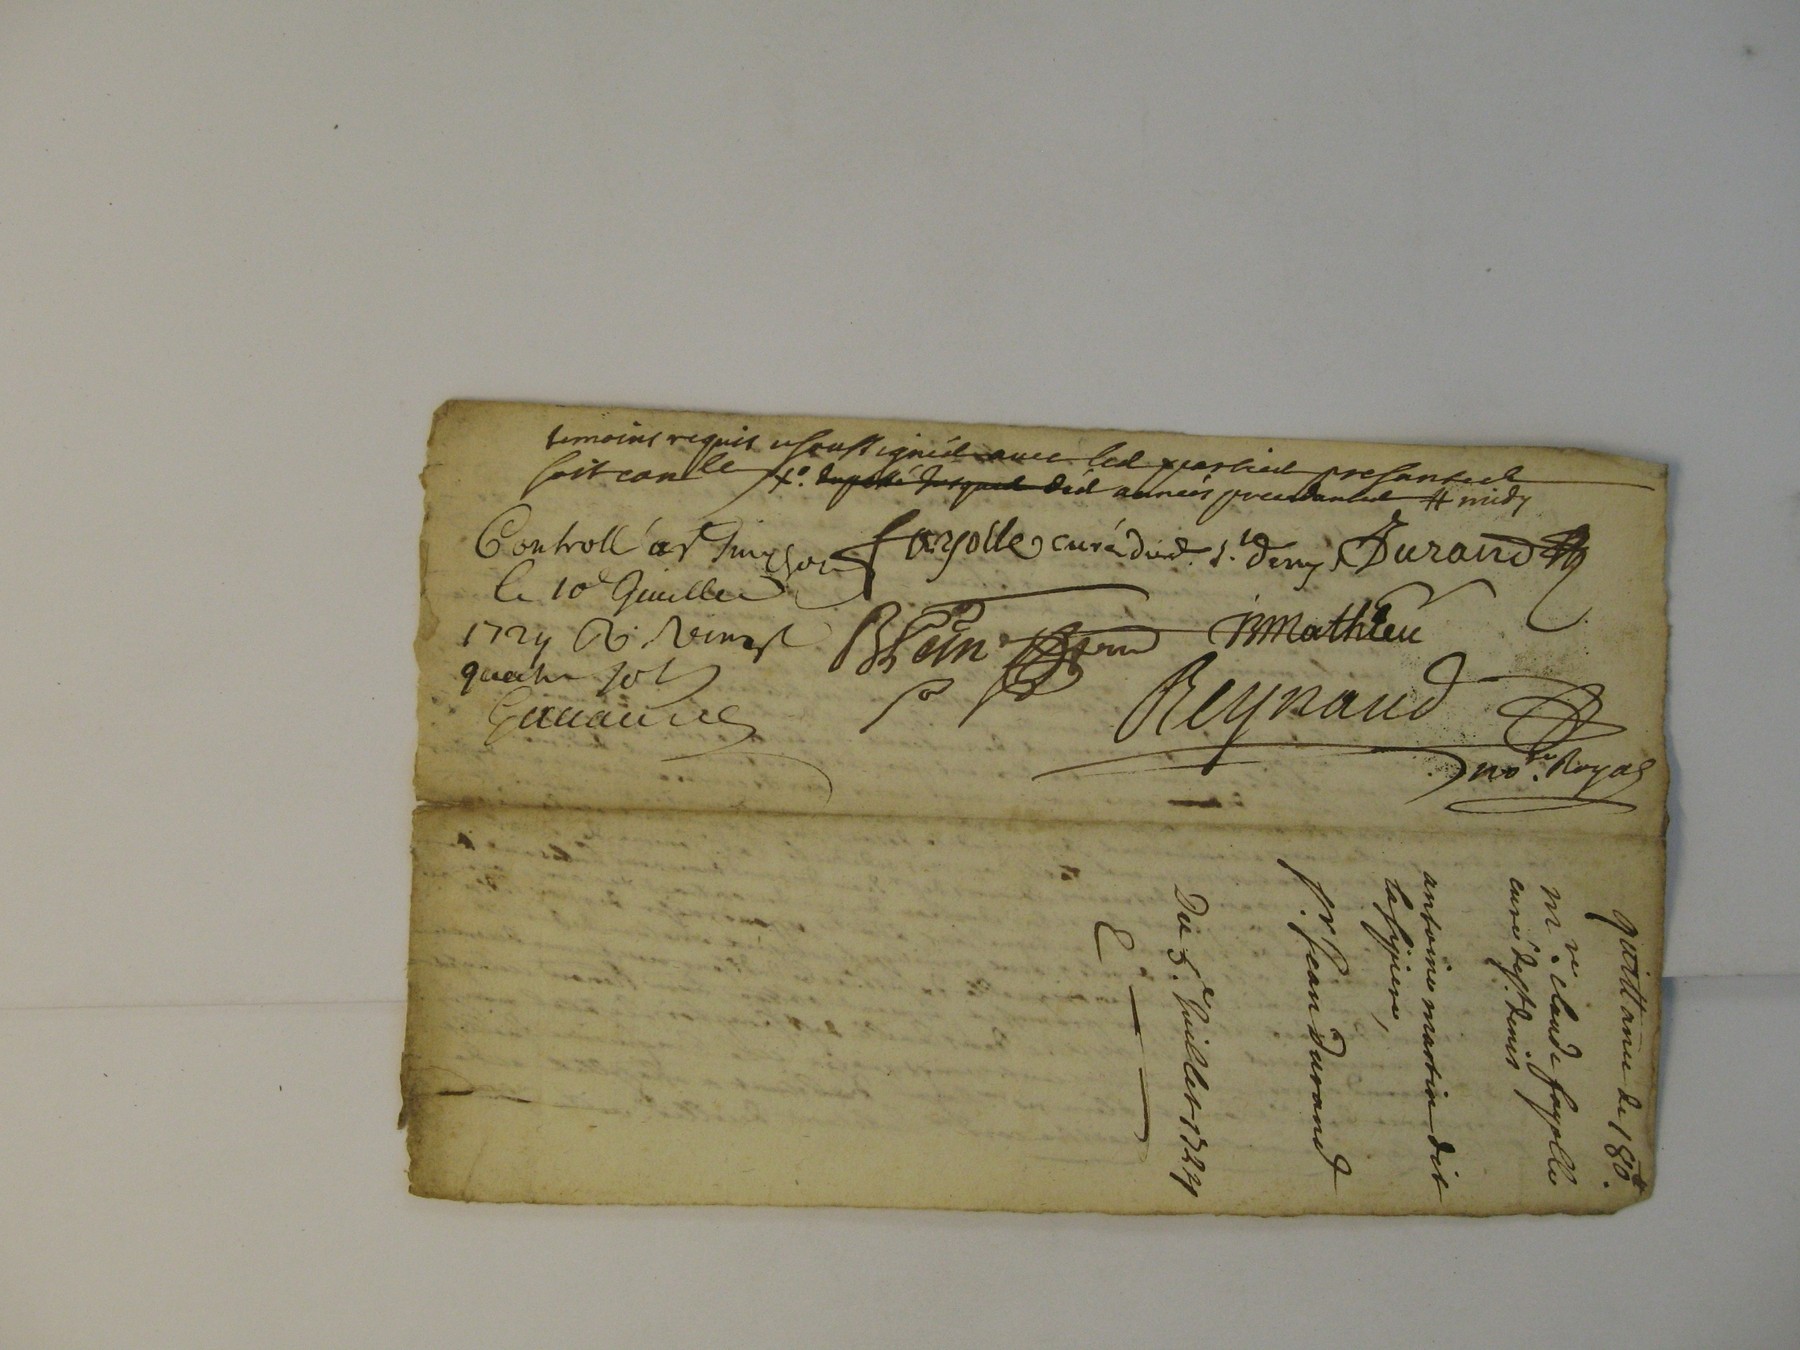 temoins requis et soussignés avec les parties presantes
soit con le xo. années precedantes # midy
Controllé a st
le 10e Juillet
1724 R. vingt
quatre sols
fayolle curé dud. st. denys Durand
Blein
mathieu
Reynaud
nore. Royal
quittance de 180tt.
mre. claude fayolle
curé de st. denis
antoine martin dit
laffyere,
sr. Jean durand
Du 5e. Juillet 1724